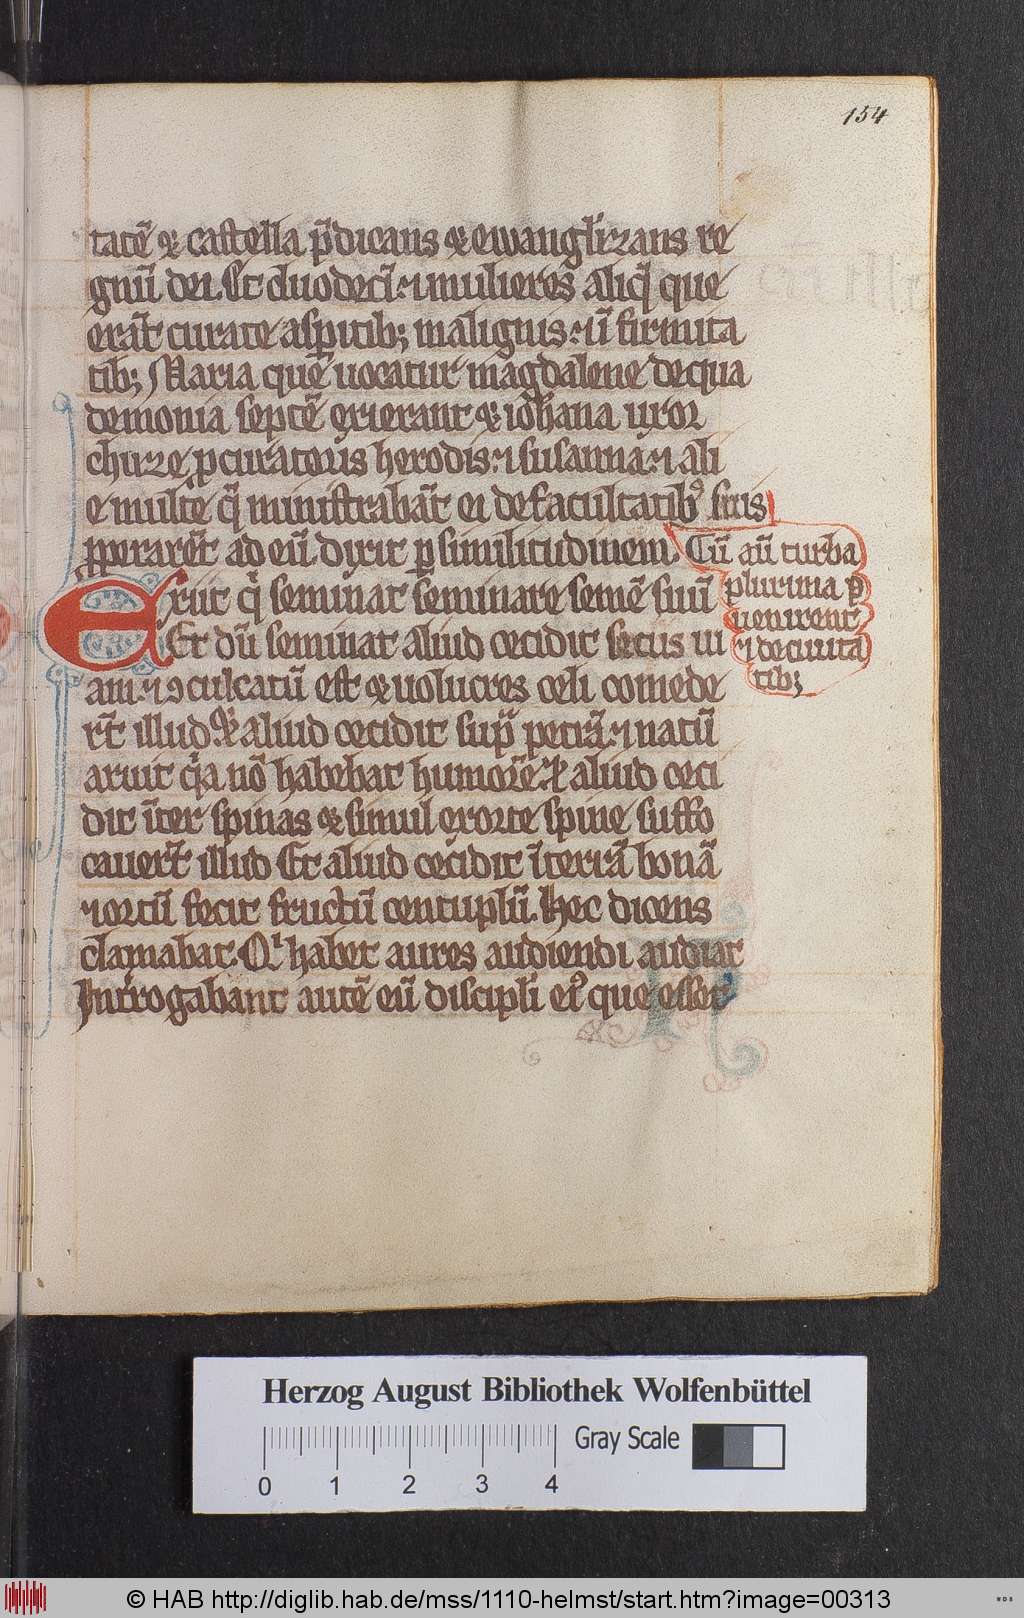 154
tatē & castella p̄dicans & ewangl̄izans re
gnū dei. Et duodecī ⁊ mulieres aliq̄ que
erāt curate aspiritib; malignis ⁊ īfirmita
tib; Maria que uocatur magdalene dequa
demonia septē exierant & iohana uxor
chuze p̄curatoris herodis ⁊ susanna ⁊ ali
e multe q̄ ministrabāt ei defacultatib᷒ suis
pperarēt ad eū dixit p similitudinem
Cū aū turba
plurima ꝯ
uenirent
⁊ deciuita
tib;
Exiit q̄ seminat seminare semē suū
Et dū seminat aliud cecidit secus ui
am ⁊ ꝯculcatū est & uolucres celi comede
rt̄ illud & aliud cecidit sup̄ petrā ⁊ natū
aruit q̄a nō habebat humorē & aliud ceci
dit īter spinas & simul exorte spine suffo
cauert̄ illud Et aliud cecidit īterrā bonā
⁊ ortū fecit fructū centuplū. Hec dicens
clamabat. Qi habet aures audiendi audiat
Int̄rogabant autē eū discipl̄i ei᷒ que esset
Herzog August Bibliothek Wolfenbüttel
Gray Scale
0 1 2 3 4
© HAB http://diglib.hab.de/mss/1110-helmst/start.htm?image=00313